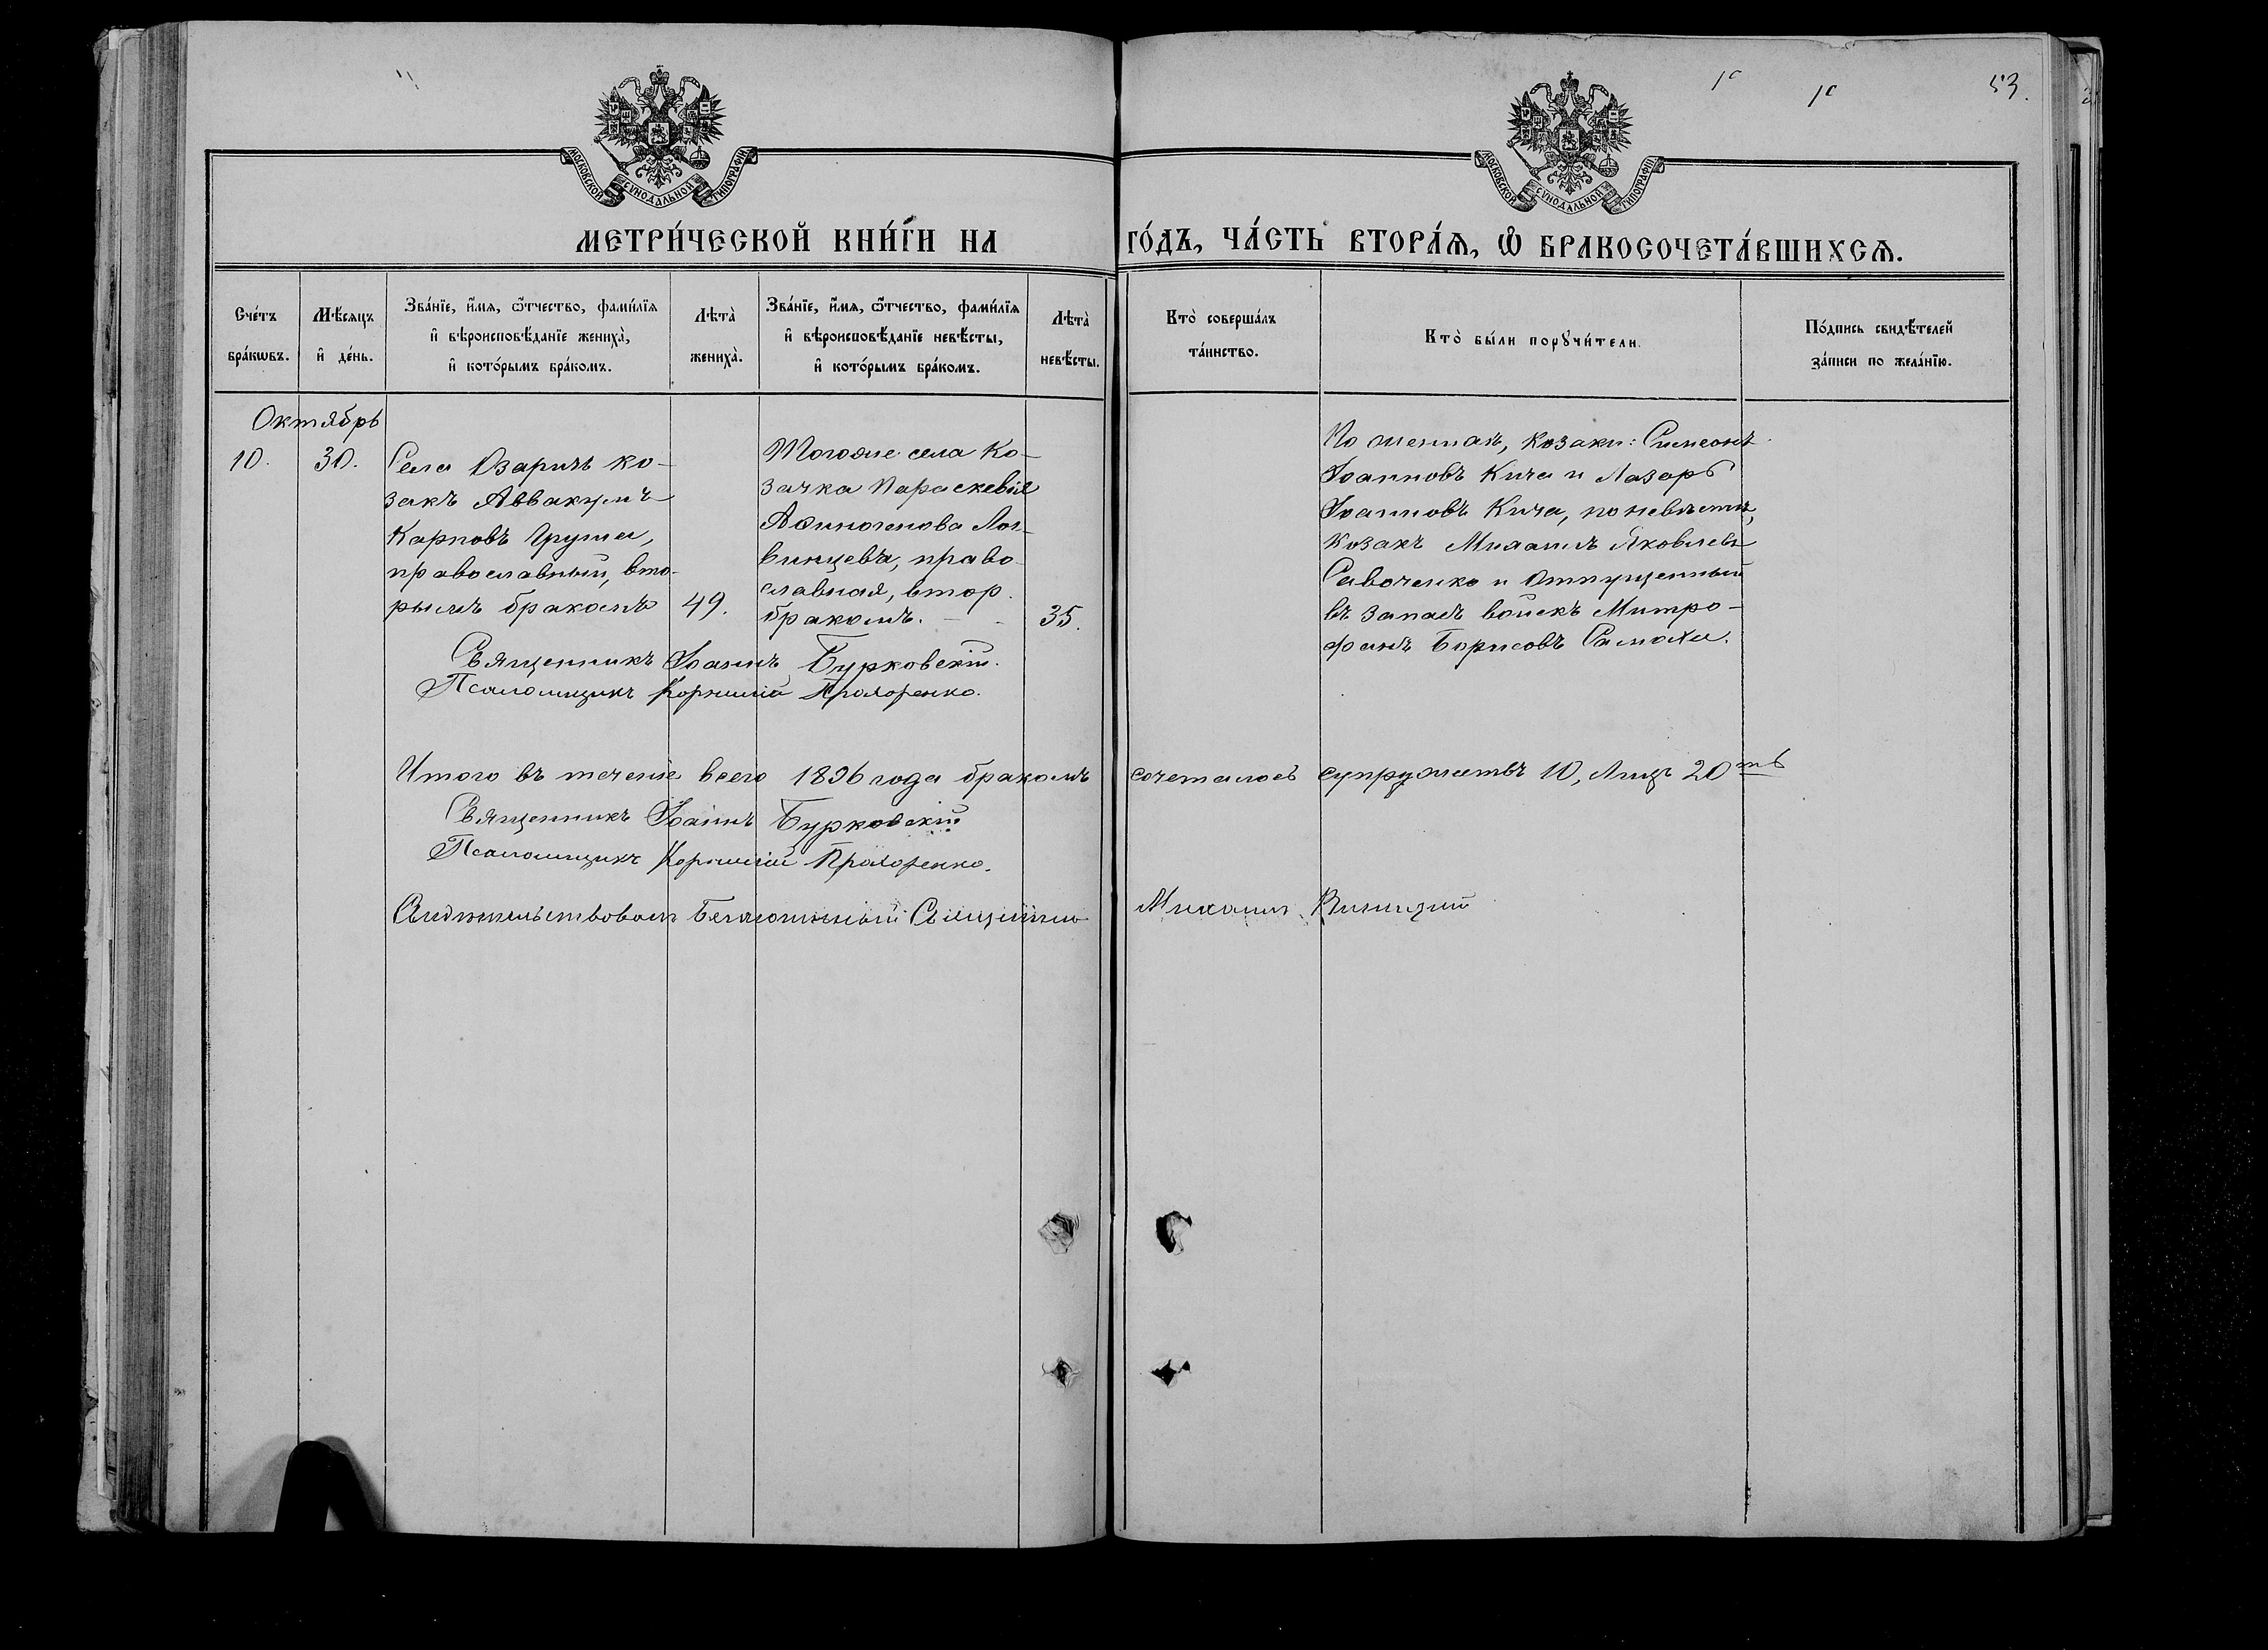 53.
МОСКОВСКОЙ СѴНОДАЛЬНОЙ ТИПОГРАФІИ
МОСКОВСКОЙ СѴНОДАЛЬНОЙ ТИПОГРАФІИ
МЕТРИ́ЧЕСКОЙ КНИ́ГИ НА ГО́ДЪ, ЧА́СТЬ ВТОРА́Я, Ѽ БРАКОСОЧЕТА́ВШИХСЯ.
Сче́тъ
бра́кѡвъ.
Мѣ́сяцъ
и҆ де́нь.
Зва́нїе, и҆́мя, ѻ҆́тчество, фами́лїя
и҆ вѣроисповѣ́данїе жениха̀,
и҆ кото́рымъ бра́комъ.
Лѣта̀
жениха̀.
Зва́нїе, и҆́мя, ѻ҆́тчество, фами́лїя
и҆ вѣроисповѣ́данїе невѣ́сты,
и҆ кото́рымъ бра́комъ.
Лѣта̀
невѣ́сты.
Кто̀ соверша́лъ
та́инство.
Кто̀ бы́ли порꙋчи́тели.
По́дпись свидѣ́телей
за́писи по жела́нїю.
Октябрь
10. 30.
Села Озаричъ ко-
закъ Аввакумъ
Карповъ Груша,
православный, вто-
рымъ бракомъ 49.
Тогоже села ко-
зачка Параскевія
Афиногенова Лог-
винцева, право-
славная, втор.
бракомъ. 35.
По женихѣ, козаки: Симеонъ
Іоанновъ Кича и Лазарь
Іоанновъ Кича, по невѣстѣ,
козакъ Михаилъ Яковлевъ
Савоченко и Отпущенный
въ запасъ войскъ Митро-
фанъ Борисовъ Самоха.
Священникъ Іоаннъ Бурковскій.
Псаломщикъ Корнилій Прохоренко.
Итого въ теченіе всего 1896 года бракомъ сочеталось супружествъ 10, Лицъ 20ть
Священникъ Іоаннъ Бурковскій
Псаломщикъ Корнилій Прохоренко.
Свидѣтельствовалъ Благочинный Священникъ Михаилъ